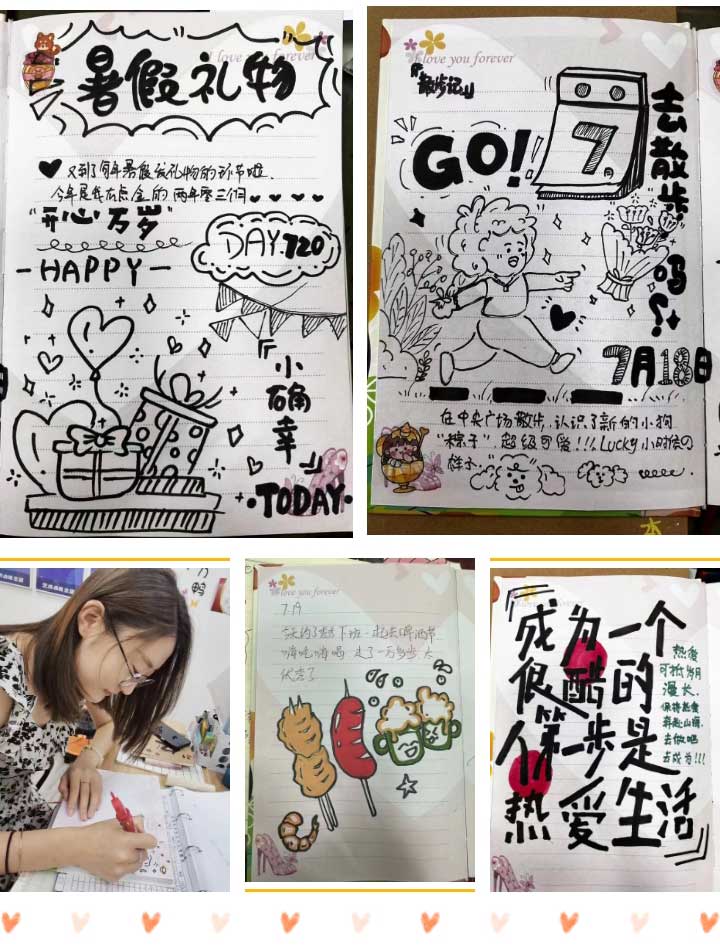 I love you forever
暑假礼物
又到了每年暑假发礼物的环节啦.
今年是我在点金的 两年零三个月
"开心万岁"
-HAPPY-
DAY.720
『小确幸』
·TODAY·
I love you forever
『散步记』
GO!
7
去散步吗?
7月18日
在中央广场散步.认识了新的小狗
"粽子".超级可爱!!!Lucky小时候的
样子.
love you forever
7.19
嗨吃嗨喝 走了一万多步 太
成为一个
很酷的
人第一步是
热爱生活
热爱
可抵岁月
漫长.
保持热爱
奔赴山海.
去做吧
去成为!!!